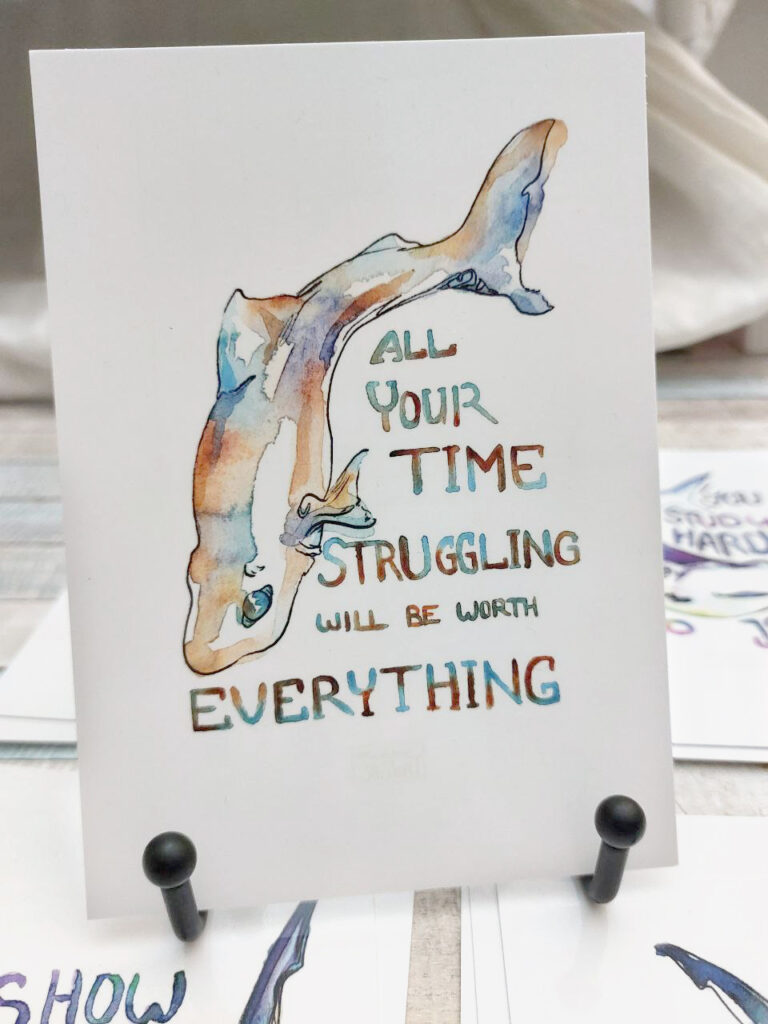 ALL
YOUR
TIME
STRUGGLING
WILL BE WORTH
EVERYTHING
STUDY
HARD
SHOW